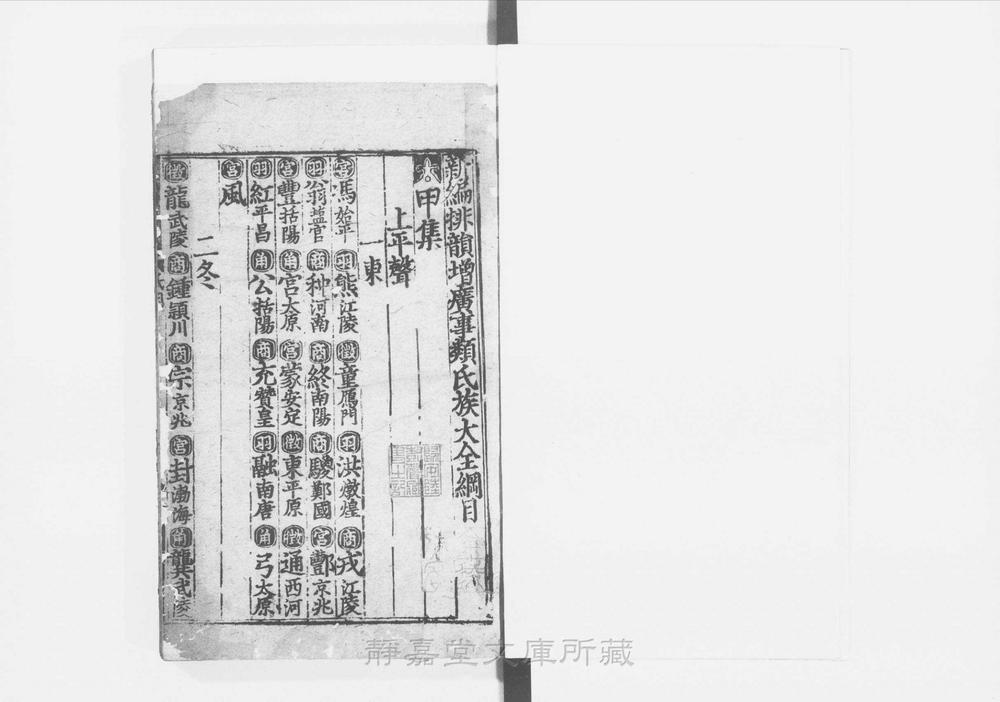 新編排韻增廣事類氏族大全綱目
甲集
上平聲
一東
宮馮始平 羽熊江陵 徵童鴈門 羽洪燉煌 商戎江陵
羽翁鹽官 商种河南 商終南陽 商騣鄭國 宮酆京兆
宮豐括陽 角宮太原 宮蒙安定 徵東平原 徵通西河
羽紅平昌 角公括陽 商充贊皇 羽融南唐 角弓太原
宮風
二冬
徵龍武陵 商鍾頴川 商宗京兆 宮封渤海 角龔武陵
靜嘉堂文庫所藏